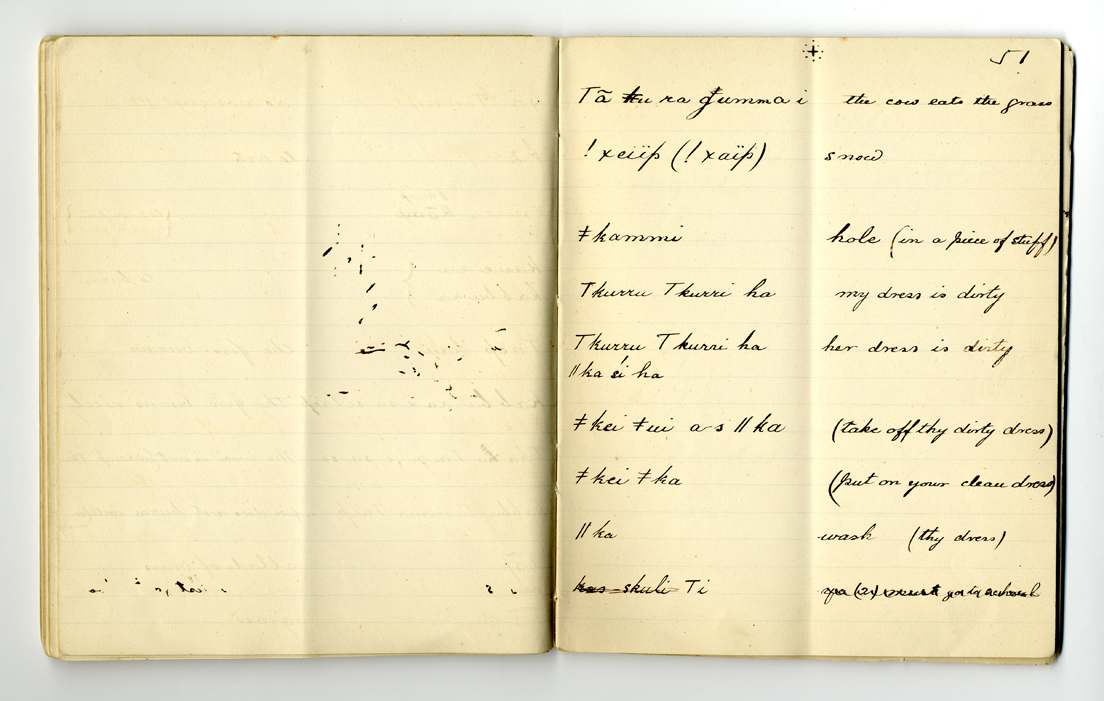 51
Tã ku ra gumma i the cow eats the grass
! xeiïp (! xaïp) snow
ǂkammi hole (in a piece of stuff)
Tkurru Tkurri ha my dress is dirty
Tkurru Tkurri ha her dress is dirty
ǁka si ha
ǂkei ǂui a-s ǁka (take off thy dirty dress)
ǂkei ǂka (put on your clean dress)
ǁka wash (thy dress)
skuli Ti go to school